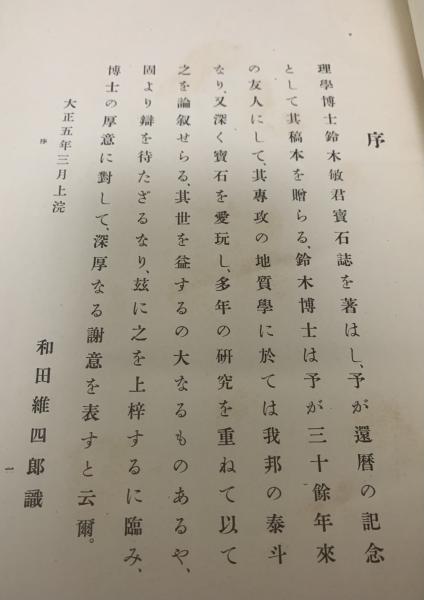 序
理學博士鈴木敏君寶石誌を著はし、予が還曆の記念
として其稿本を贈らる、鈴木博士は予が三十餘年來
の友人にして、其專攻の地質學に於ては我邦の泰斗
なり、又深く寶石を愛玩し、多年の硏究を重ねて以て
之を論敍せらる、其世を益するの大なるものあるや、
固より辯を待たざるなり、玆に之を上梓するに臨み、
博士の厚意に對して、深厚なる謝意を表すと云爾。
大正五年三月上浣
和田維四郞識
序
一